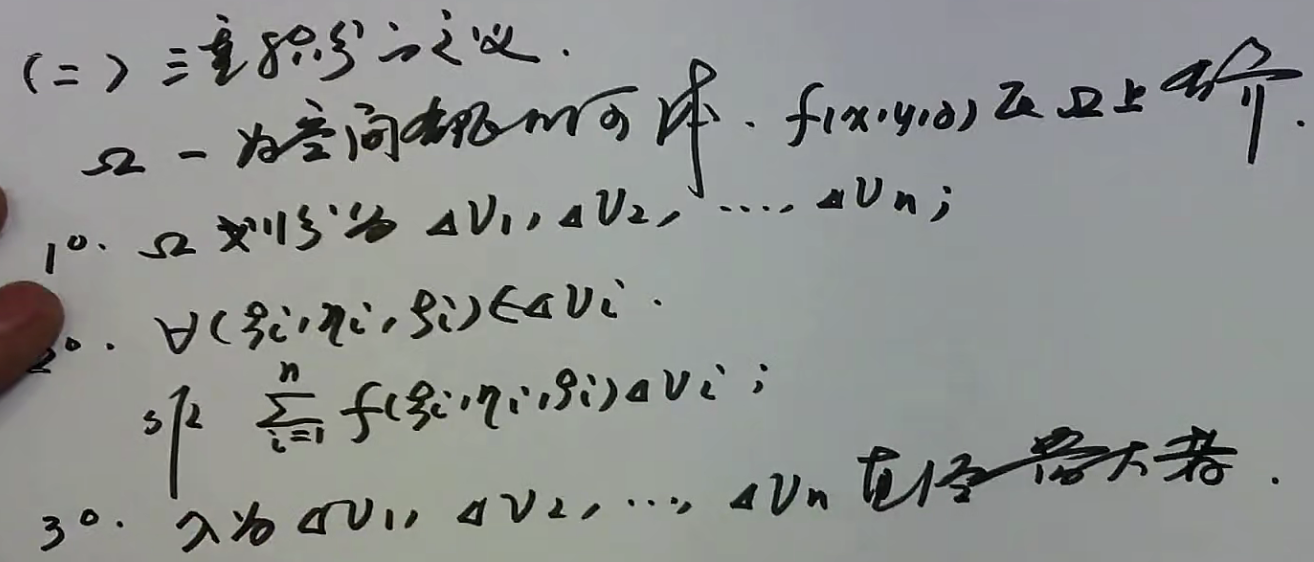 (二) 三重积分之定义.
Ω - 为空间有限几何体. f(x,y,z)在Ω上有界.
1°. Ω划分为 ΔV1, ΔV2, ...., ΔVn;
2°. ∀(ξi,ηi,ζi)∈ΔVi.
作 \sum_{i=1}^{n} f(ξi,ηi,ζi)ΔVi;
3°. λ为ΔV1, ΔV2, ..., ΔVn 直径最大者.